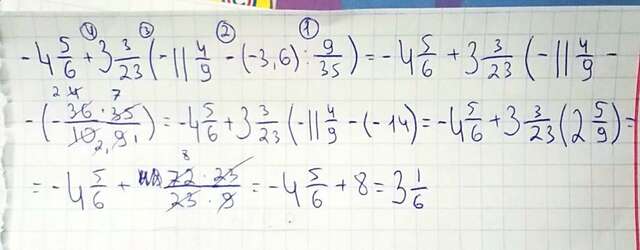 ④ ③ ② ①
-4 5/6 + 3 3/23 (-11 4/9 - (-3,6) : 9/35) = -4 5/6 + 3 3/23 (-11 4/9 -
- (- 36 · 35 / 10 · 9)) = -4 5/6 + 3 3/23 (-11 4/9 - (-14) = -4 5/6 + 3 3/23 (2 5/9) =
= -4 5/6 + 72 · 23 / 23 · 9 = -4 5/6 + 8 = 3 1/6